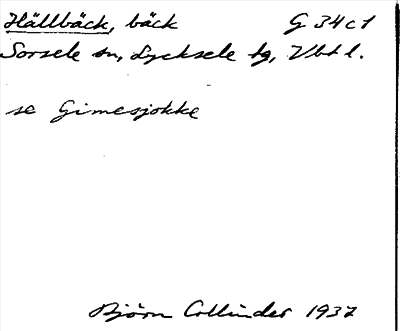 Hällbäck, bäck G 34 c 1
Sorsele sn, Lycksele tg, Vbt l.
se Gimesjokke
Björn Collinder 1937